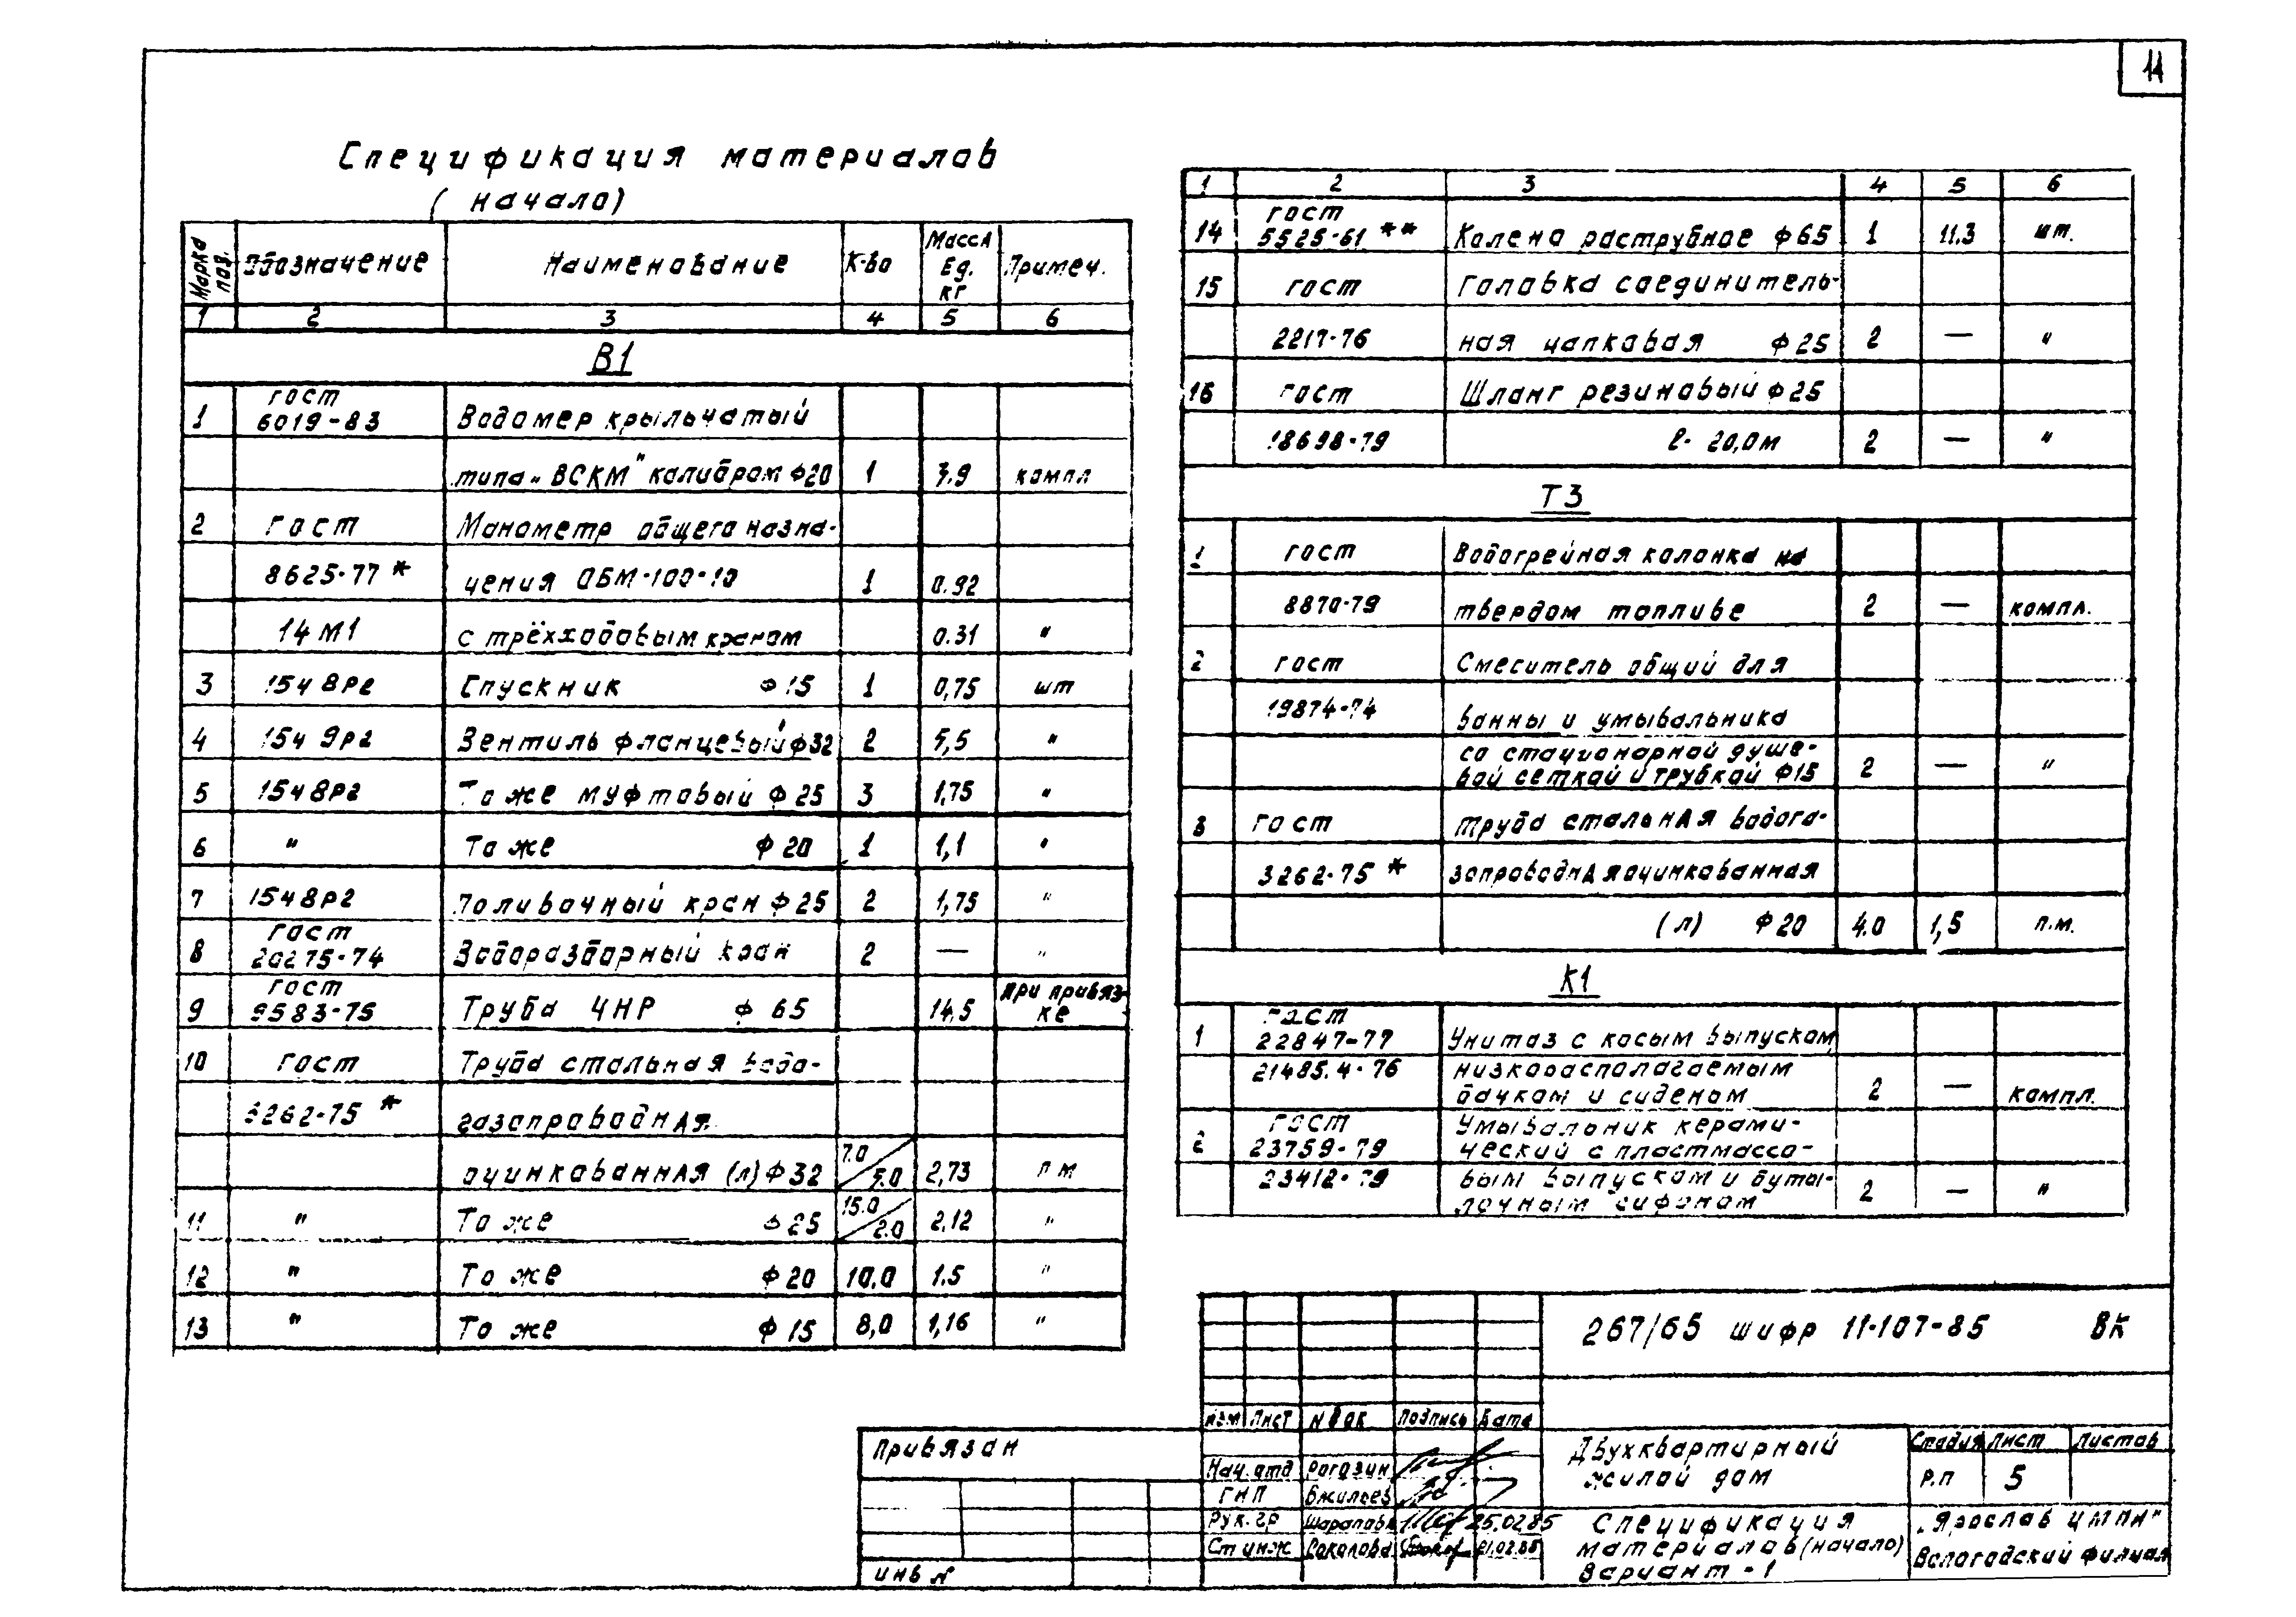 11
Спецификация материалов
(начало)
Марка поз. Обозначение Наименование К-во Масса Ед. кг Примеч.
1 2 3 4 5 6
В1
1 гост 6019-83 Водомер крыльчатый
типа „ВСКМ" калибром ф20 1 3.9 компл
2 гост Манометр общего назна-
8625-77* чения ОБМ-100-10 1 0.92
14М1 с трёхходовым краном 0.31 "
3 15ч 8р2 Спускник ф15 1 0,75 шт
4 15ч 9р2 Вентиль фланцевый ф32 2 5,5 "
5 15ч8р2 То же муфтовый ф25 3 1,75 "
6 " То же ф20 1 1,1 "
7 15ч8р2 Поливочный кран ф25 2 1,75 "
8 гост 20275-74 Водоразборный кран 2 — "
9 гост 9583-75 Труба ЧНР ф 65 14,5 При привяз-ке
10 гост Труба стальная водо-
3262-75* газопроводная
оцинкованная (л) ф32 7.0/5.0 2,73 п м
11 " То же ф25 15.0/2.0 2,12 "
12 " То же ф20 10,0 1.5 "
13 " То же ф15 8,0 1,16 "
1 2 3 4 5 6
14 гост 5525-61** Колено раструбное ф65 1 11.3 шт.
15 гост Головка соединитель-
2217-76 ная цапковая ф25 2 — "
16 гост Шланг резиновый ф25
18698-79 l- 20,0м 2 — "
Т3
1 гост Водогрейная колонка на
8870-79 твердом топливе 2 — компл.
2 гост Смеситель общий для
19874-74 ванны и умывальника
со стационарной душе-
вой сеткой и трубкой ф15 2 — "
3 гост труба стальная водога-
3262-75* зопроводная оцинкованная
(л) ф20 4.0 1,5 п.м.
К1
1 гост 22847-77 Унитаз с косым выпуском,
21485.4-76 низкорасполагаемым
бачком и сиденом 2 — компл.
2 гост 23759-79 Умывальник керами-
ческий с пластмассо-
23412-79 вым выпуском и буты-
лочным сифоном 2 — "
267/65 шифр 11-107-85 ВК
Изм Лист N док Подпись Дата
Привязан
Нач.отд Рогозин
ГИП
Рук.гр 25.02.85
Ст инж Соколова 21.02.85
инв N
Двухквартирный
жилой дом
Стадия Лист Листов
Р.п 5
Спецификация
материалов (начало)
Вариант - 1
Вологодский филиал